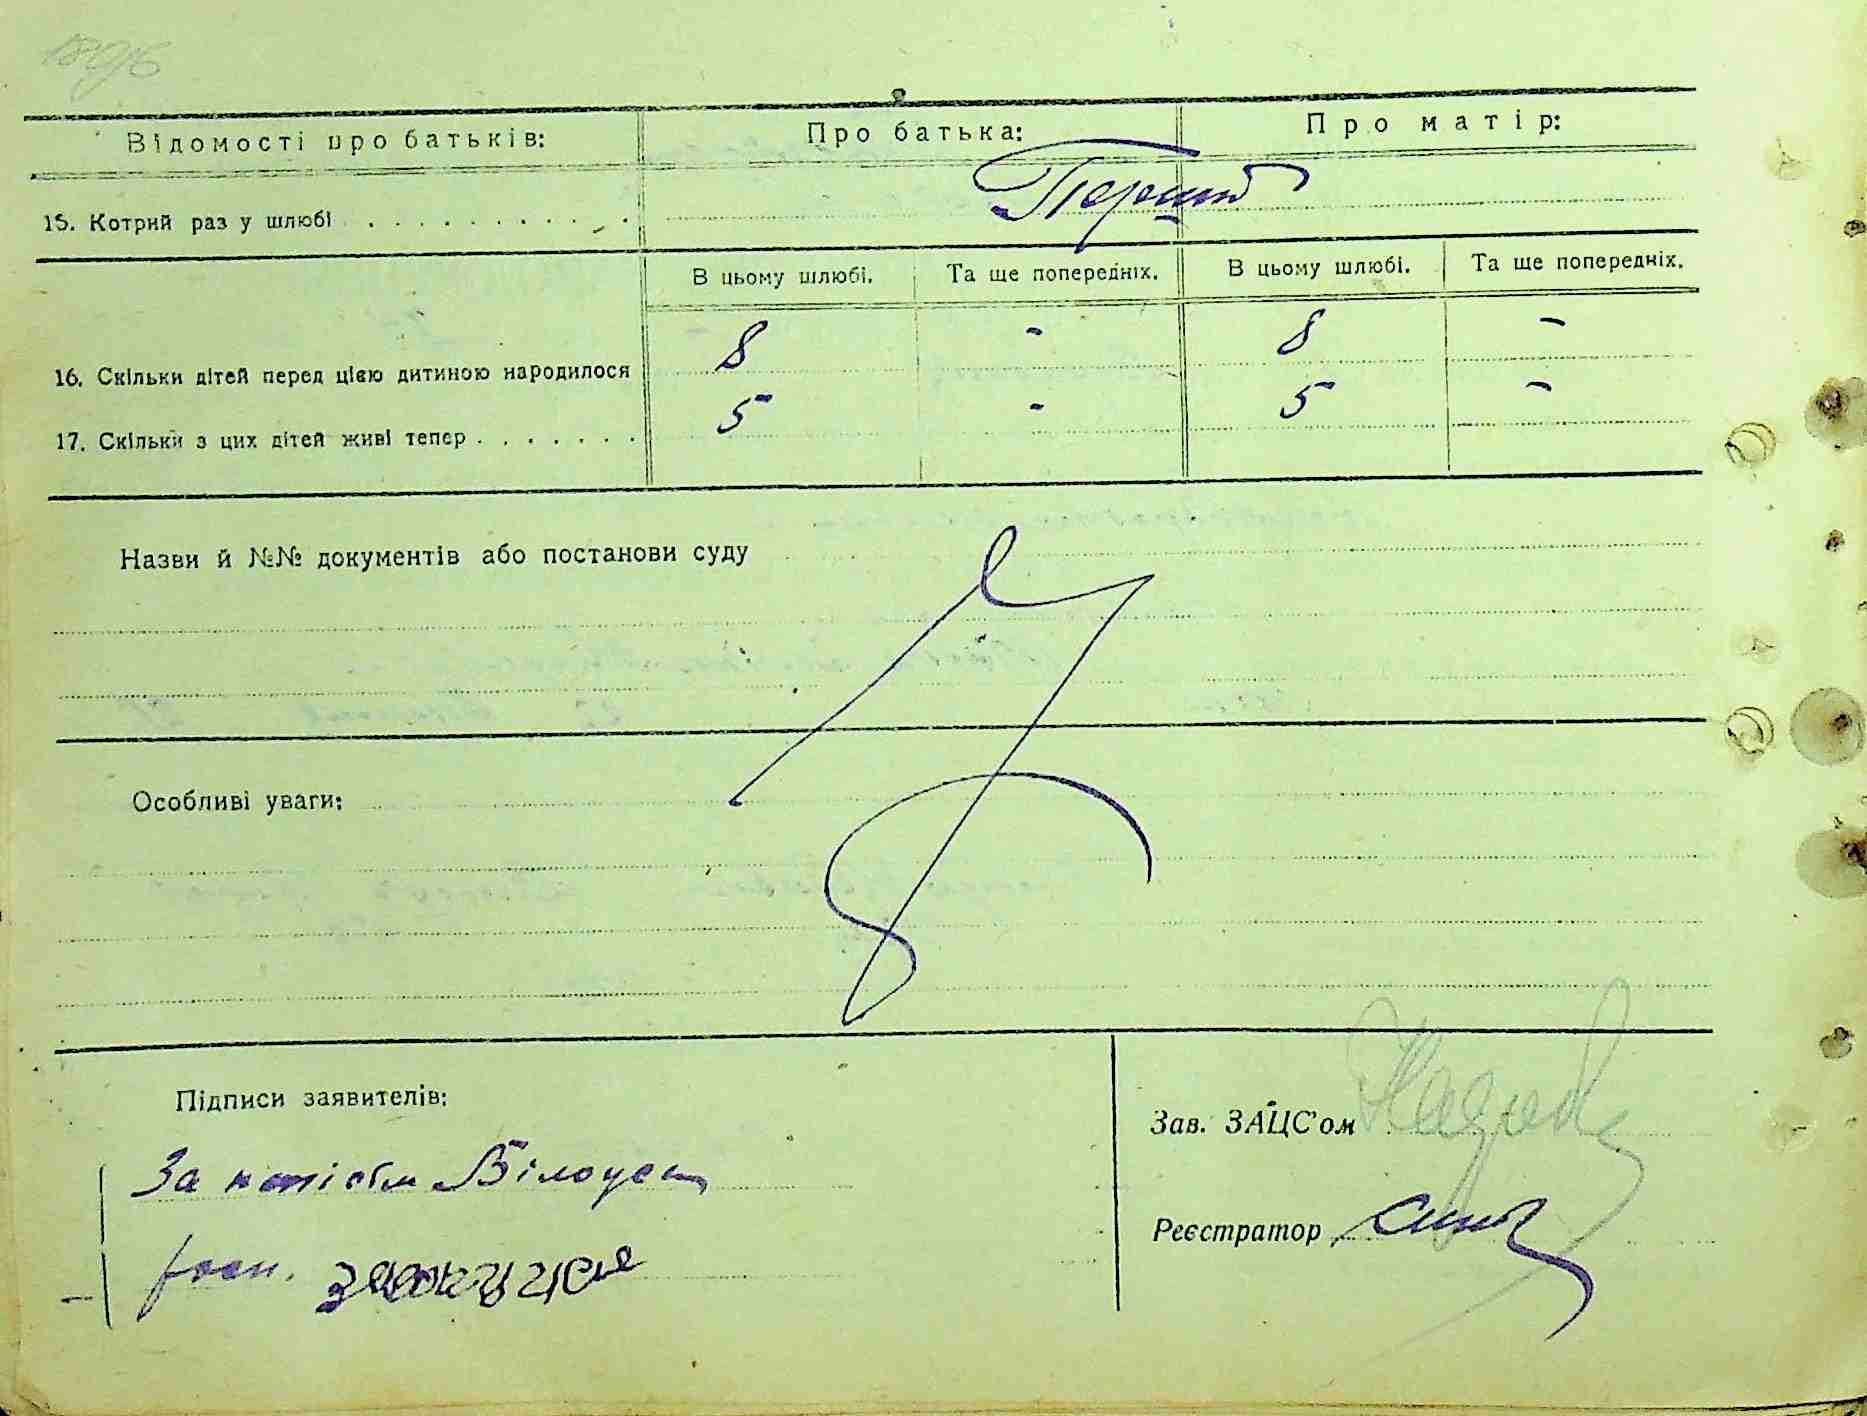 Відомості про батьків: Про батька: Про матір:
15. Котрий раз у шлюбі . . . . . . . . . . . Перший
В цьому шлюбі. Та ще попередніх. В цьому шлюбі. Та ще попередніх.
16. Скільки дітей перед цією дитиною народилося 8 - 8 -
17. Скільки з цих дітей живі тепер . . . . . . . 5 - 5 -
Назви й №№ документів або постанови суду
Особливі уваги:
Підписи заявителів:
Зав. ЗАЦС'ом
За Білоус
Реєстратор